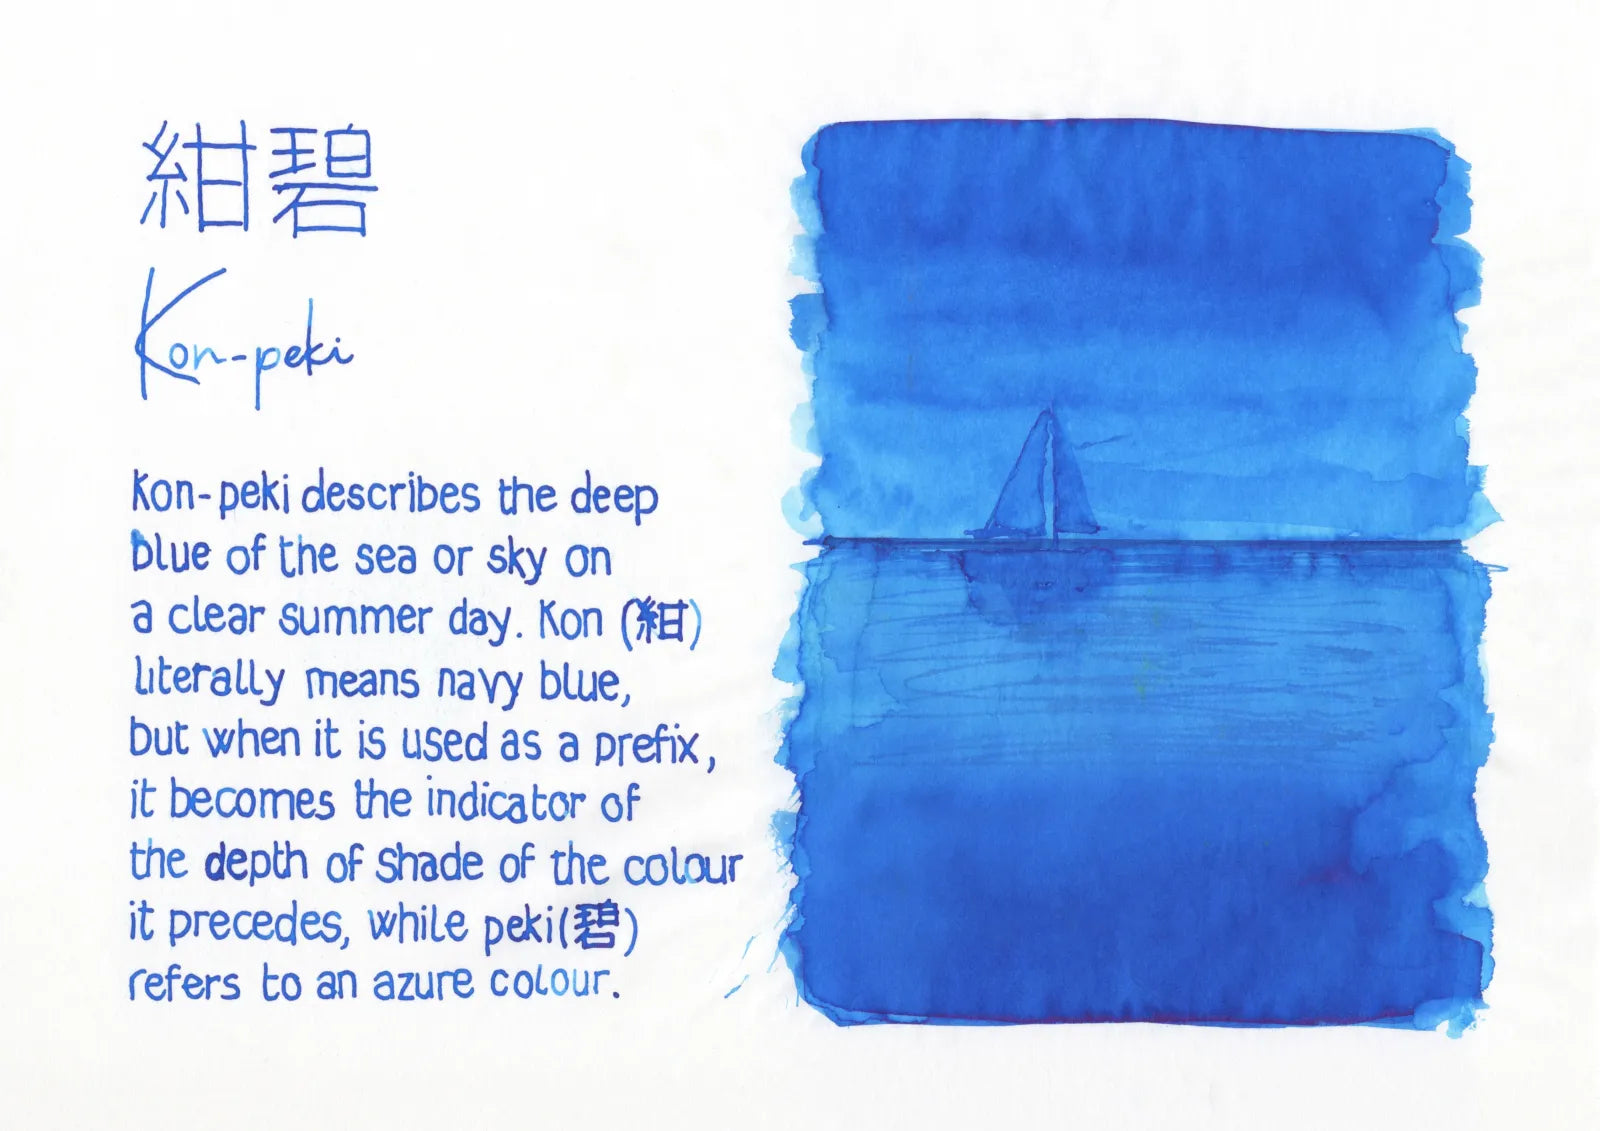 紺碧
Kon-peki
Kon-peki describes the deep
blue of the sea or sky on
a clear summer day. Kon (紺)
literally means navy blue,
but when it is used as a prefix,
it becomes the indicator of
the depth of shade of the colour
it precedes, while peki(碧)
refers to an azure colour.